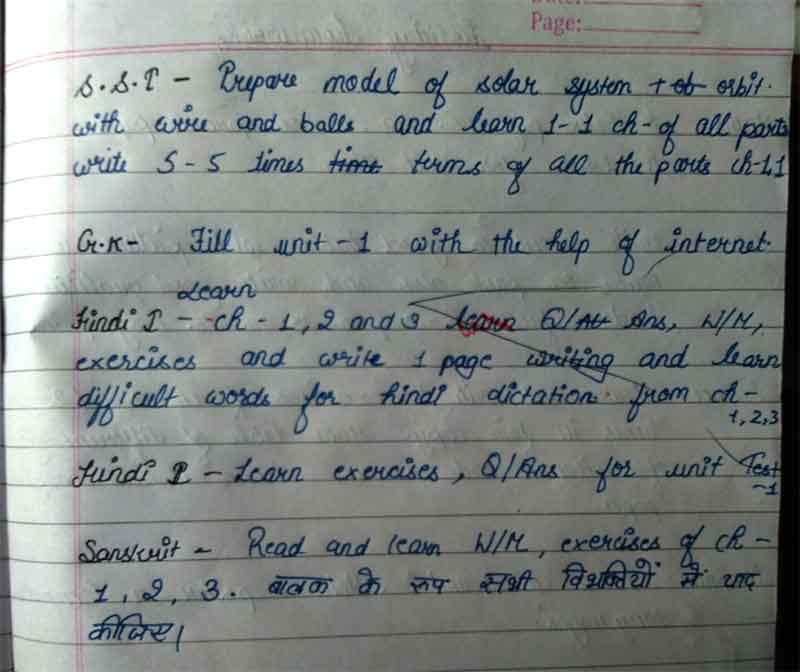 Page:
S.S.T - Prepare model of solar system + ob orbit.
with wire and balls and learn 1-1 ch-of all parts
write 5-5 times time terms of all the parts ch-1,1
G.K- Fill unit-1 with the help of internet.
Learn
Hindi I - -ch - 1, 2 and 3 learn Q/An Ans, W/M,
exercises and write 1 page writing and learn
difficult words for hindi dictation. from ch-
1,2,3
Hindi II - Learn exercises, Q/Ans for unit Test
-1
Sanskrit - Read and learn W/M, exercises of ch -
1, 2, 3. बालक के रूप सभी विभक्तियों में याद
कीजिए।